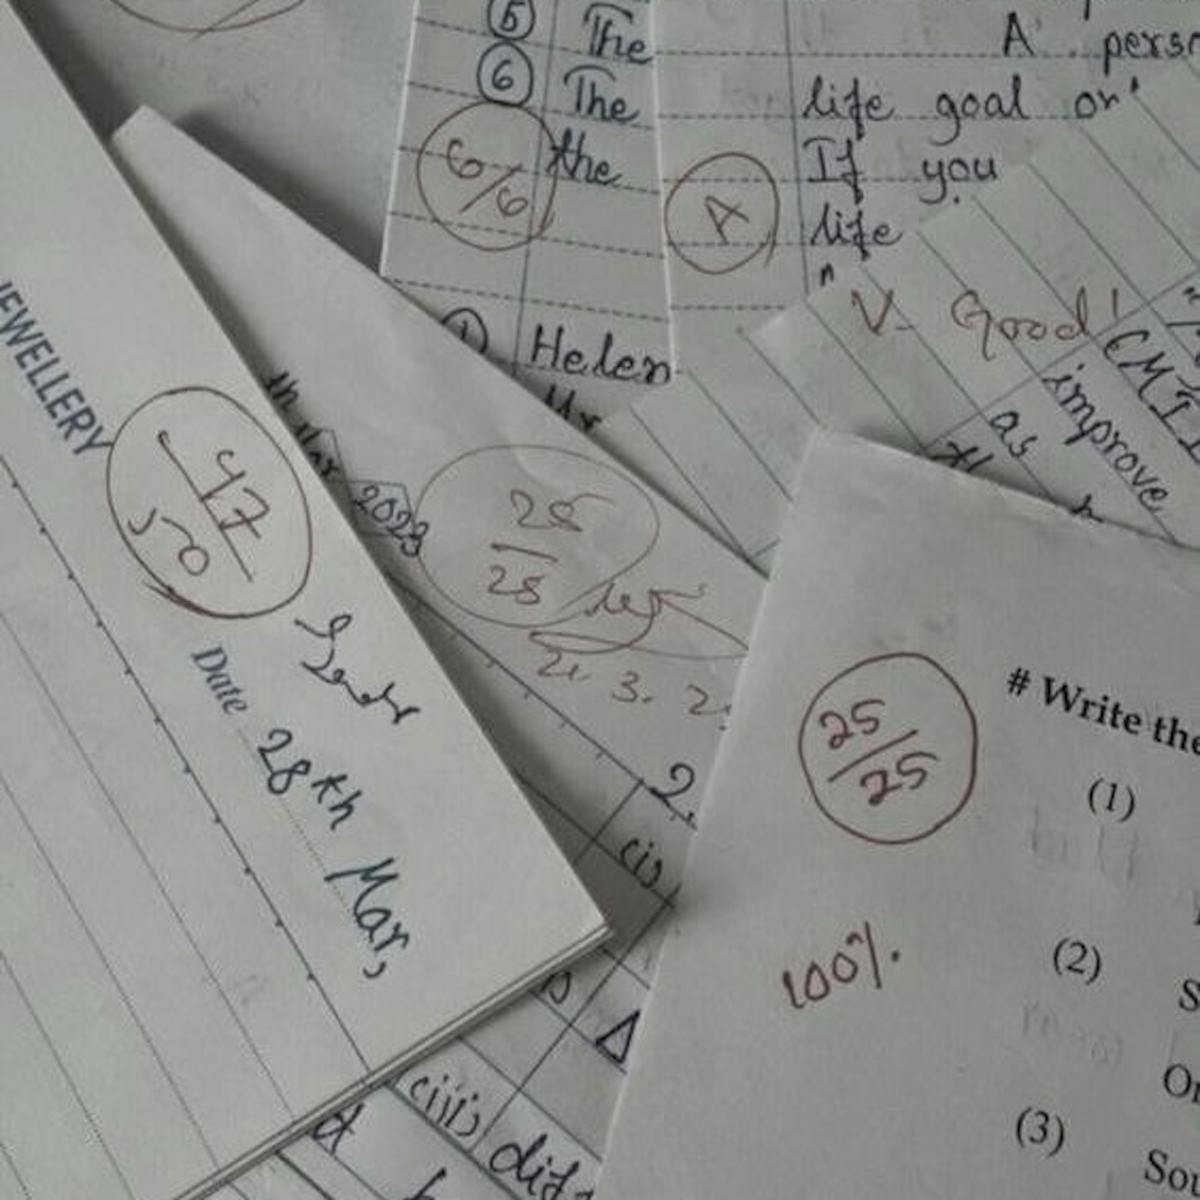 5 The
6 The
the
6/6
1 Helen
Mr
A perso
life goal or
If you
life
A
V. Good!
CMI
improve
as
JEWELLERY
47
50
Date 28th Mar,
2023
25
25
21. 3. 2
2.
(i)
Δ
(iii) dif
25/25
100%
# Write the
(1)
(2)
S
(3)
Sou